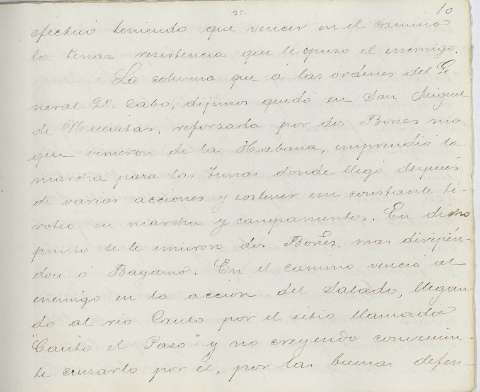 10
efectuó teniendo que vencer en el camino
la tenaz resistencia que le opuso el enemigo.
La columna que á las ordenes del Ge-
neral D. Cabo, dijimos quedó en San Miguel
de Nuevitas, reforzada por dos Bones mas
que vinieron de la Habana, emprendió la
marcha para las Tunas donde llegó despues
de varias acciones y sostener un constante ti-
roteo en marcha y campamentos. En dicho
punto se le unieron dos Bones mas dirigien-
dose á Bayamo. En el camino venció al
enemigo en la accion del Salado, llegan-
do al rio Cauto por el sitio llamado
"Cauto el Paso" y no creyendo convenien-
te cruzarlo por el, por las buenas defen-